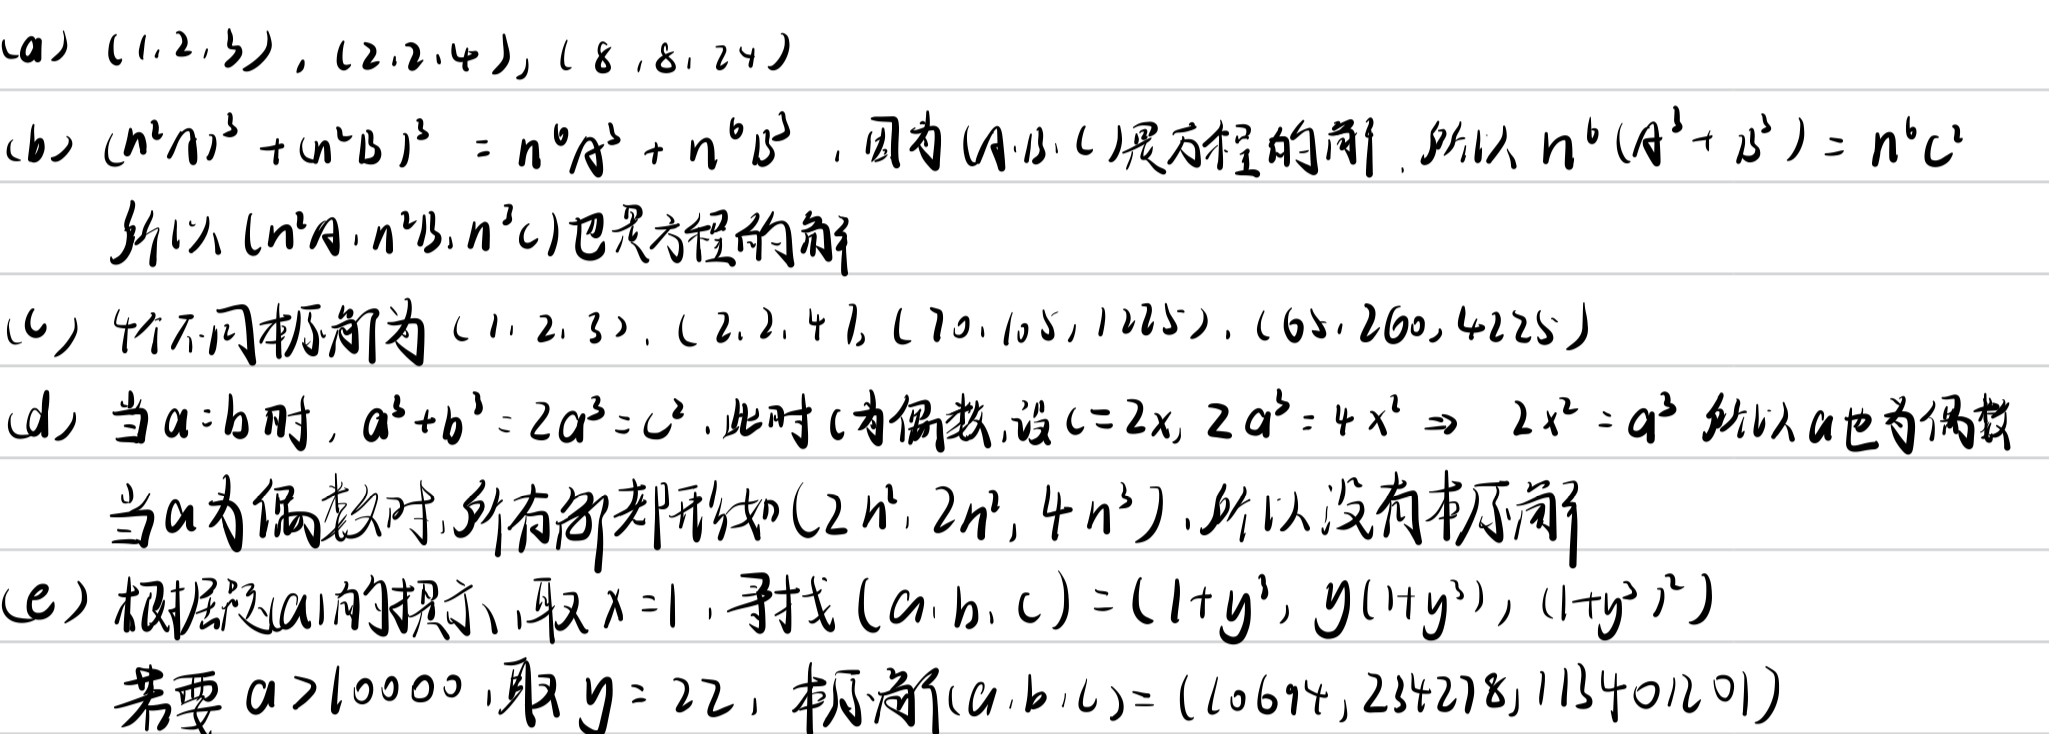 (a) (1,2,3), (2,2,4), (8,8,24)
(b) (n²A)³ + (n²B)³ = n⁶A³ + n⁶B³, 因为(A,B,C)是方程的解, 所以 n⁶(A³+B³) = n⁶C²
所以(n²A, n²B, n³C)也是方程的解
(c) 4个不同本原解为 (1,2,3), (2,2,4), (70,105,1225), (65,260,4225)
(d) 当a=b时, a³+b³=2a³=c², 此时c为偶数,设c=2x, 2a³=4x² ⇒ 2x²=a³ 所以a也为偶数
当a为偶数时,所有解都形如(2n², 2n², 4n³), 所以没有本原解
(e) 根据题(a)的提示,取x=1, 寻找(a,b,c)=(1+y³, y(1+y³), (1+y³)²)
若要a>10000,取y=22, 本原解(a,b,c)=(10694, 234278, 113401201)